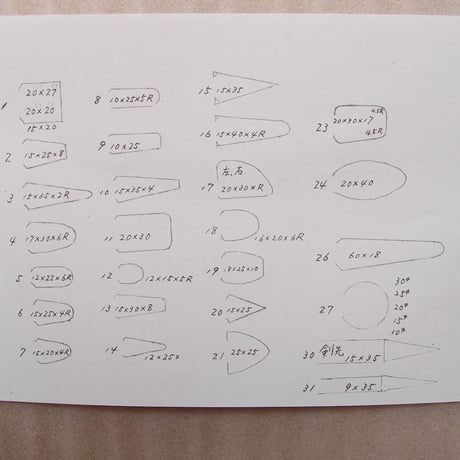 1 20×27
20×20
15×20
2 15×25×8
3 15×35×2R
4 17×30×6R
5 12×22×6R
6 15×25×4R
7 15×20×4R
8 10×25×5R
9 10×25
10 15×35×4
11 20×30
12 12×15×5R
13 15×30×8
14 12×25×
15 15×35
16 15×40×4R
17 左,右
20×30×R
18 16×20×6R
19 18×25×10
20 15×25
21 25×25
23 45R
20×30×17
45R
24 20×40
26 60×18
27 30φ
25φ
20φ
15φ
10φ
30 剣先 15×35
31 9×35